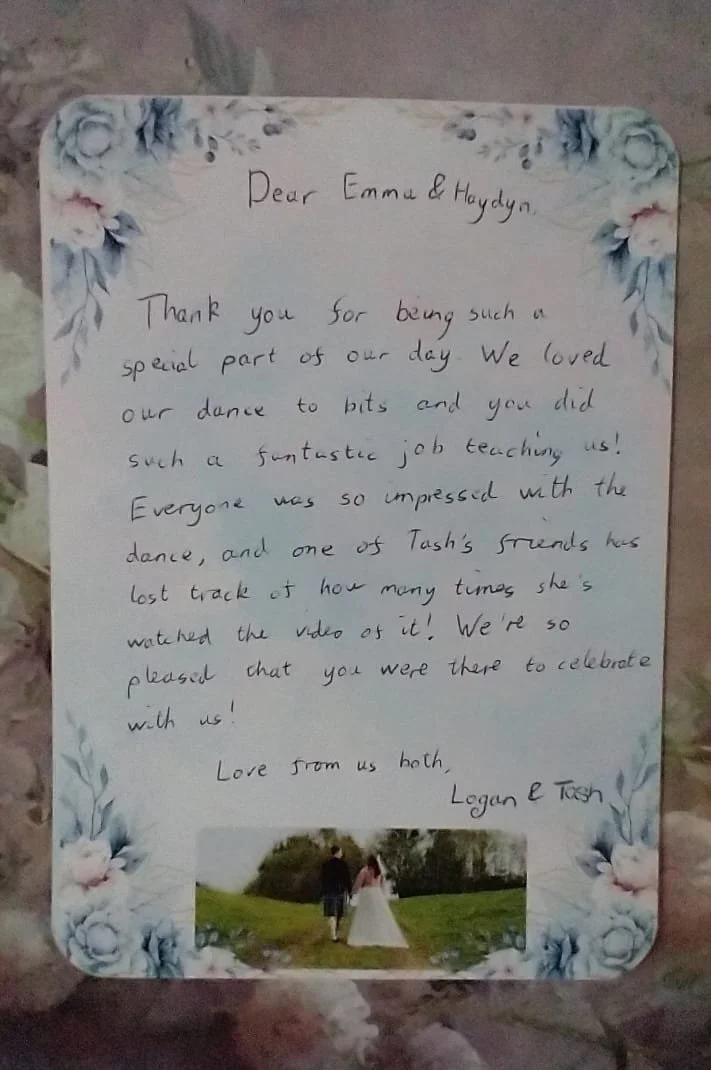 Dear Emma & Haydyn,
Thank you for being such a
special part of our day. We loved
our dance to bits and you did
such a fantastic job teaching us!
Everyone was so impressed with the
dance, and one of Tash's friends has
lost track of how many times she's
watched the video of it! We're so
pleased that you were there to celebrate
with us!
Love from us both,
Logan & Tash